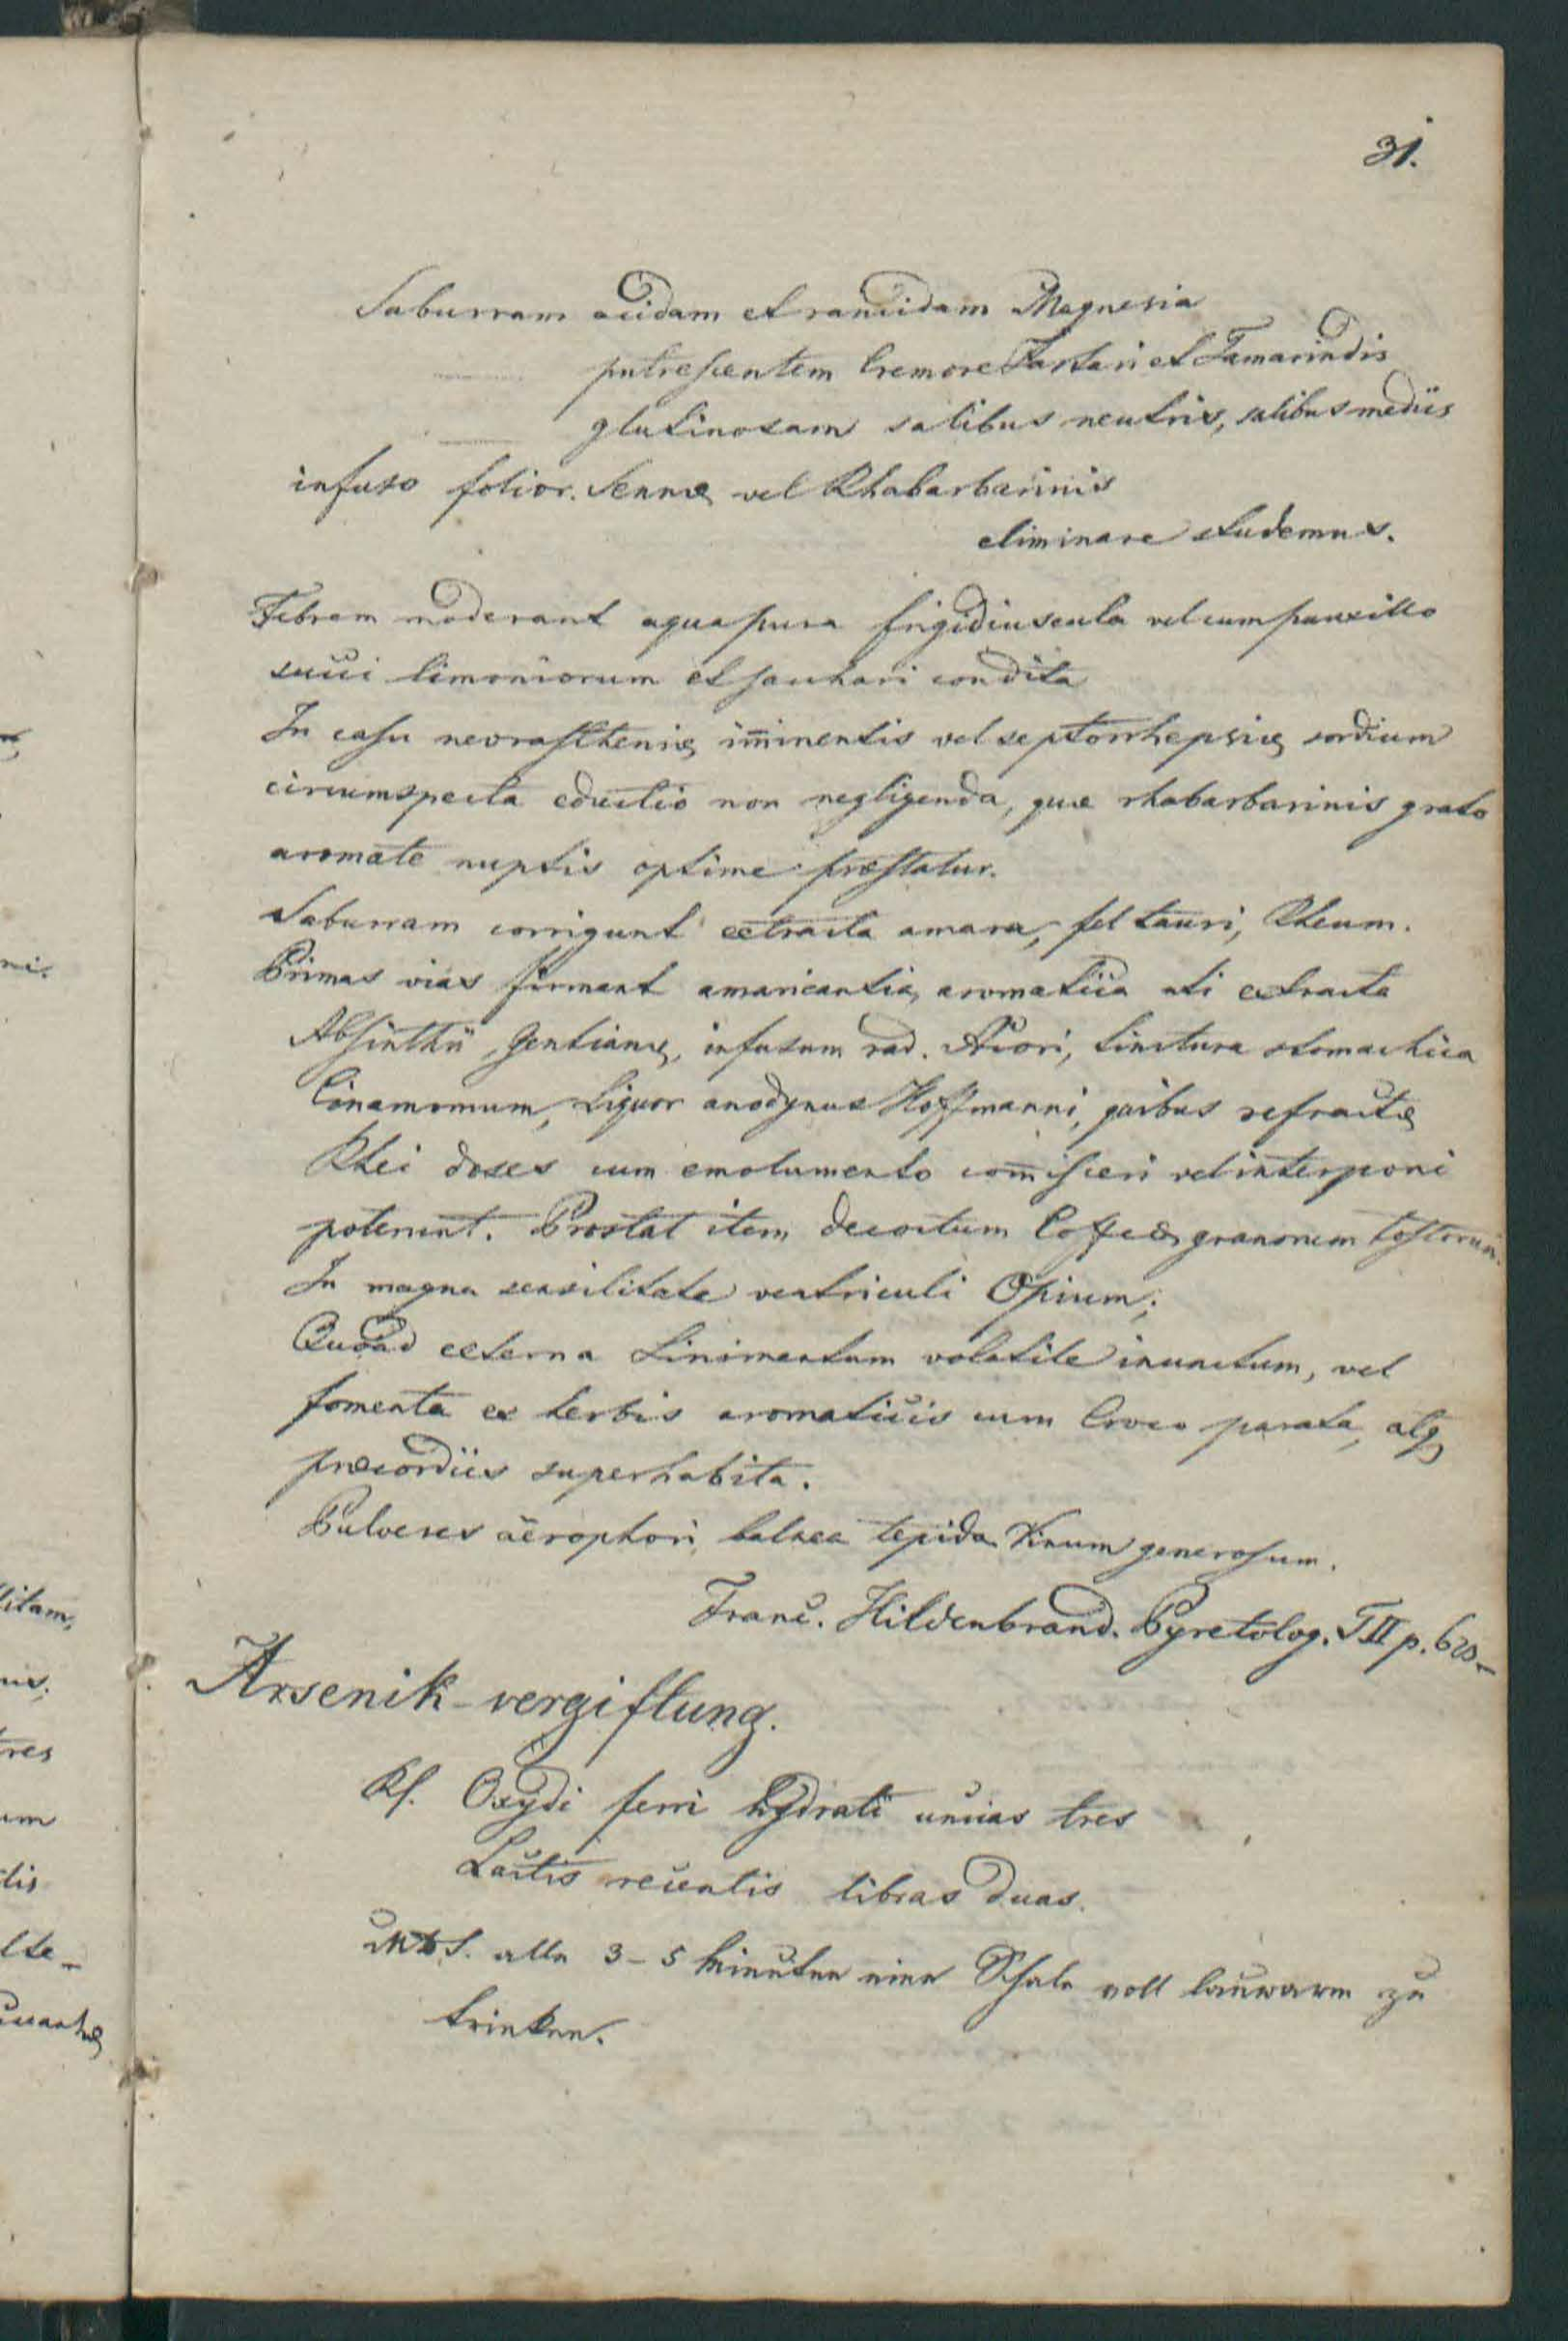 31.
Saburram acidam et rancidam Magnesia
putrescentem Cremore Tartari et Tamarindis
glutinosam salibus neutris, salibus mediis
infuso folior. Sennæ vel Rhabarbarinis
eliminare studemus.
Febrem moderant aqua pura frigidiuscula vel cum pauxillo
succi limoniorum et sacchari condita
In casu nevrastheniæ im̄inentis vel sordium
circumspecta eductio non negligenda, quæ rhabarbarinis grato
aromate nuptis optime præstatur.
Saburram corrigunt extracta amara, fel tauri, Rheum.
Primas vias firmant amaricantia, aromatica uti extracta
Absinthii, Gentianæ, infusum rad. Acori, tinctura stomachica
Cinamomum, Liquor anodynus Hoffmanni, quibus refractæ
Rhei doses cum emolumento com̄isceri vel interponi
poterunt. Prostat item decoctum Coffeæ granorum tostorum.
In magna sensilitate ventriculi Opium;
Quoad externa Linimentum volatile inunctum, vel
fomenta ex herbis aromaticis cum Croco parata, atq
præcordiis superhabita.
Pulveres aërophori, balnea tepida Vinum generosum.
Franc. Hildenbrand. Pyretolog. T II p.
Arsenik-vergiftung.
Rf. Oxydi ferri hydrati uncias tres
Lactis recentis libras duas.
MDS. alle 3-5 Minuten eine Schale voll lauwarm zu
trinken.
ni.
litam,
res
um
dis
lte-